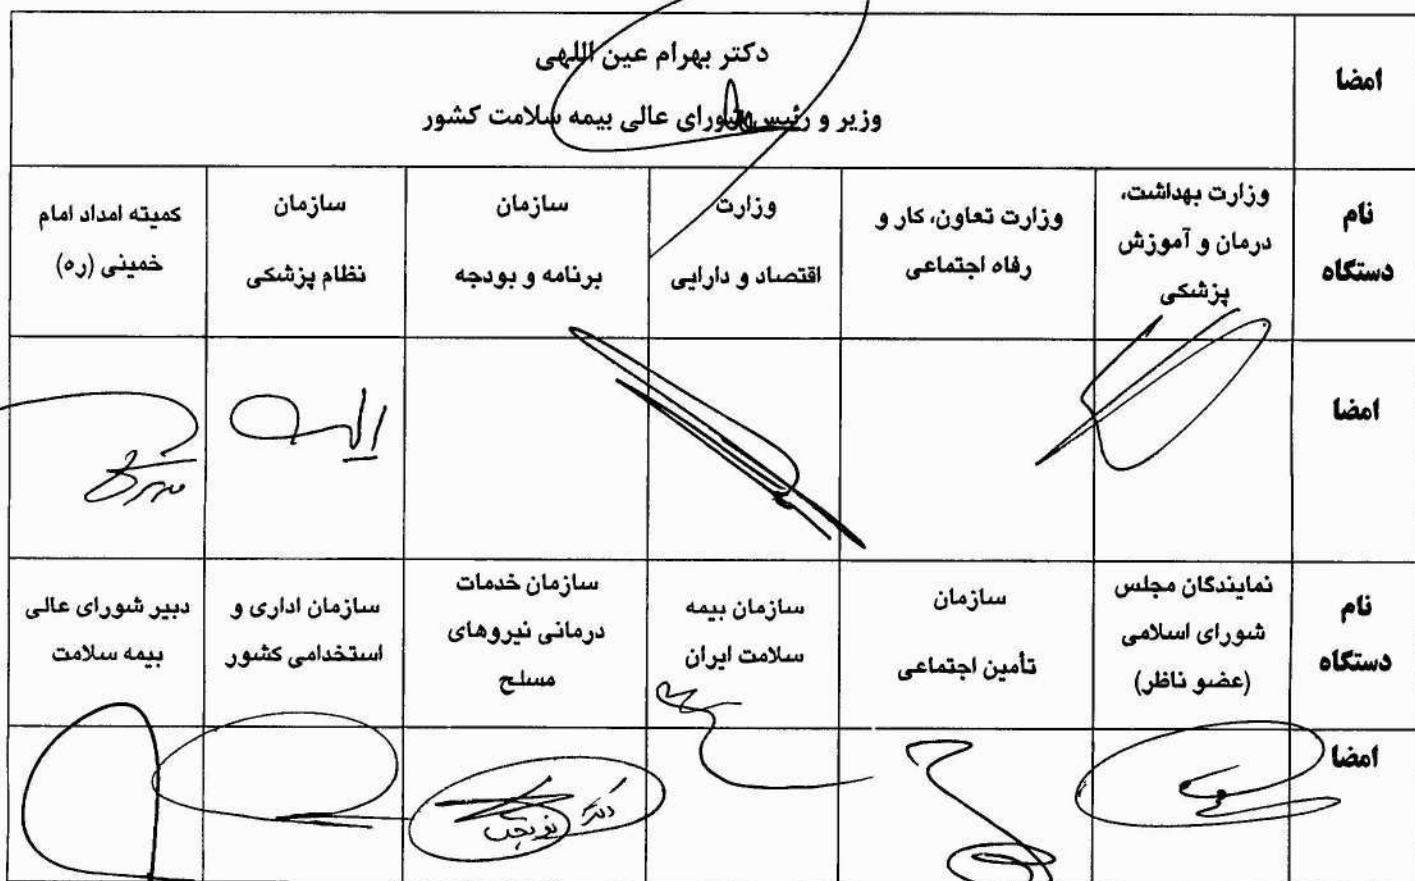 امضا
دکتر بهرام عین اللهی
وزیر و رئیس شورای عالی بیمه سلامت کشور
نام
دستگاه
وزارت بهداشت،
درمان و آموزش
پزشکی
وزارت تعاون، کار و
رفاه اجتماعی
وزارت
اقتصاد و دارایی
سازمان
برنامه و بودجه
سازمان
نظام پزشکی
کمیته امداد امام
خمینی (ره)
امضا
نام
دستگاه
نمایندگان مجلس
شورای اسلامی
(عضو ناظر)
سازمان
تأمین اجتماعی
سازمان بیمه
سلامت ایران
سازمان خدمات
درمانی نیروهای
مسلح
سازمان اداری و
استخدامی کشور
دبیر شورای عالی
بیمه سلامت
امضا
دکتر